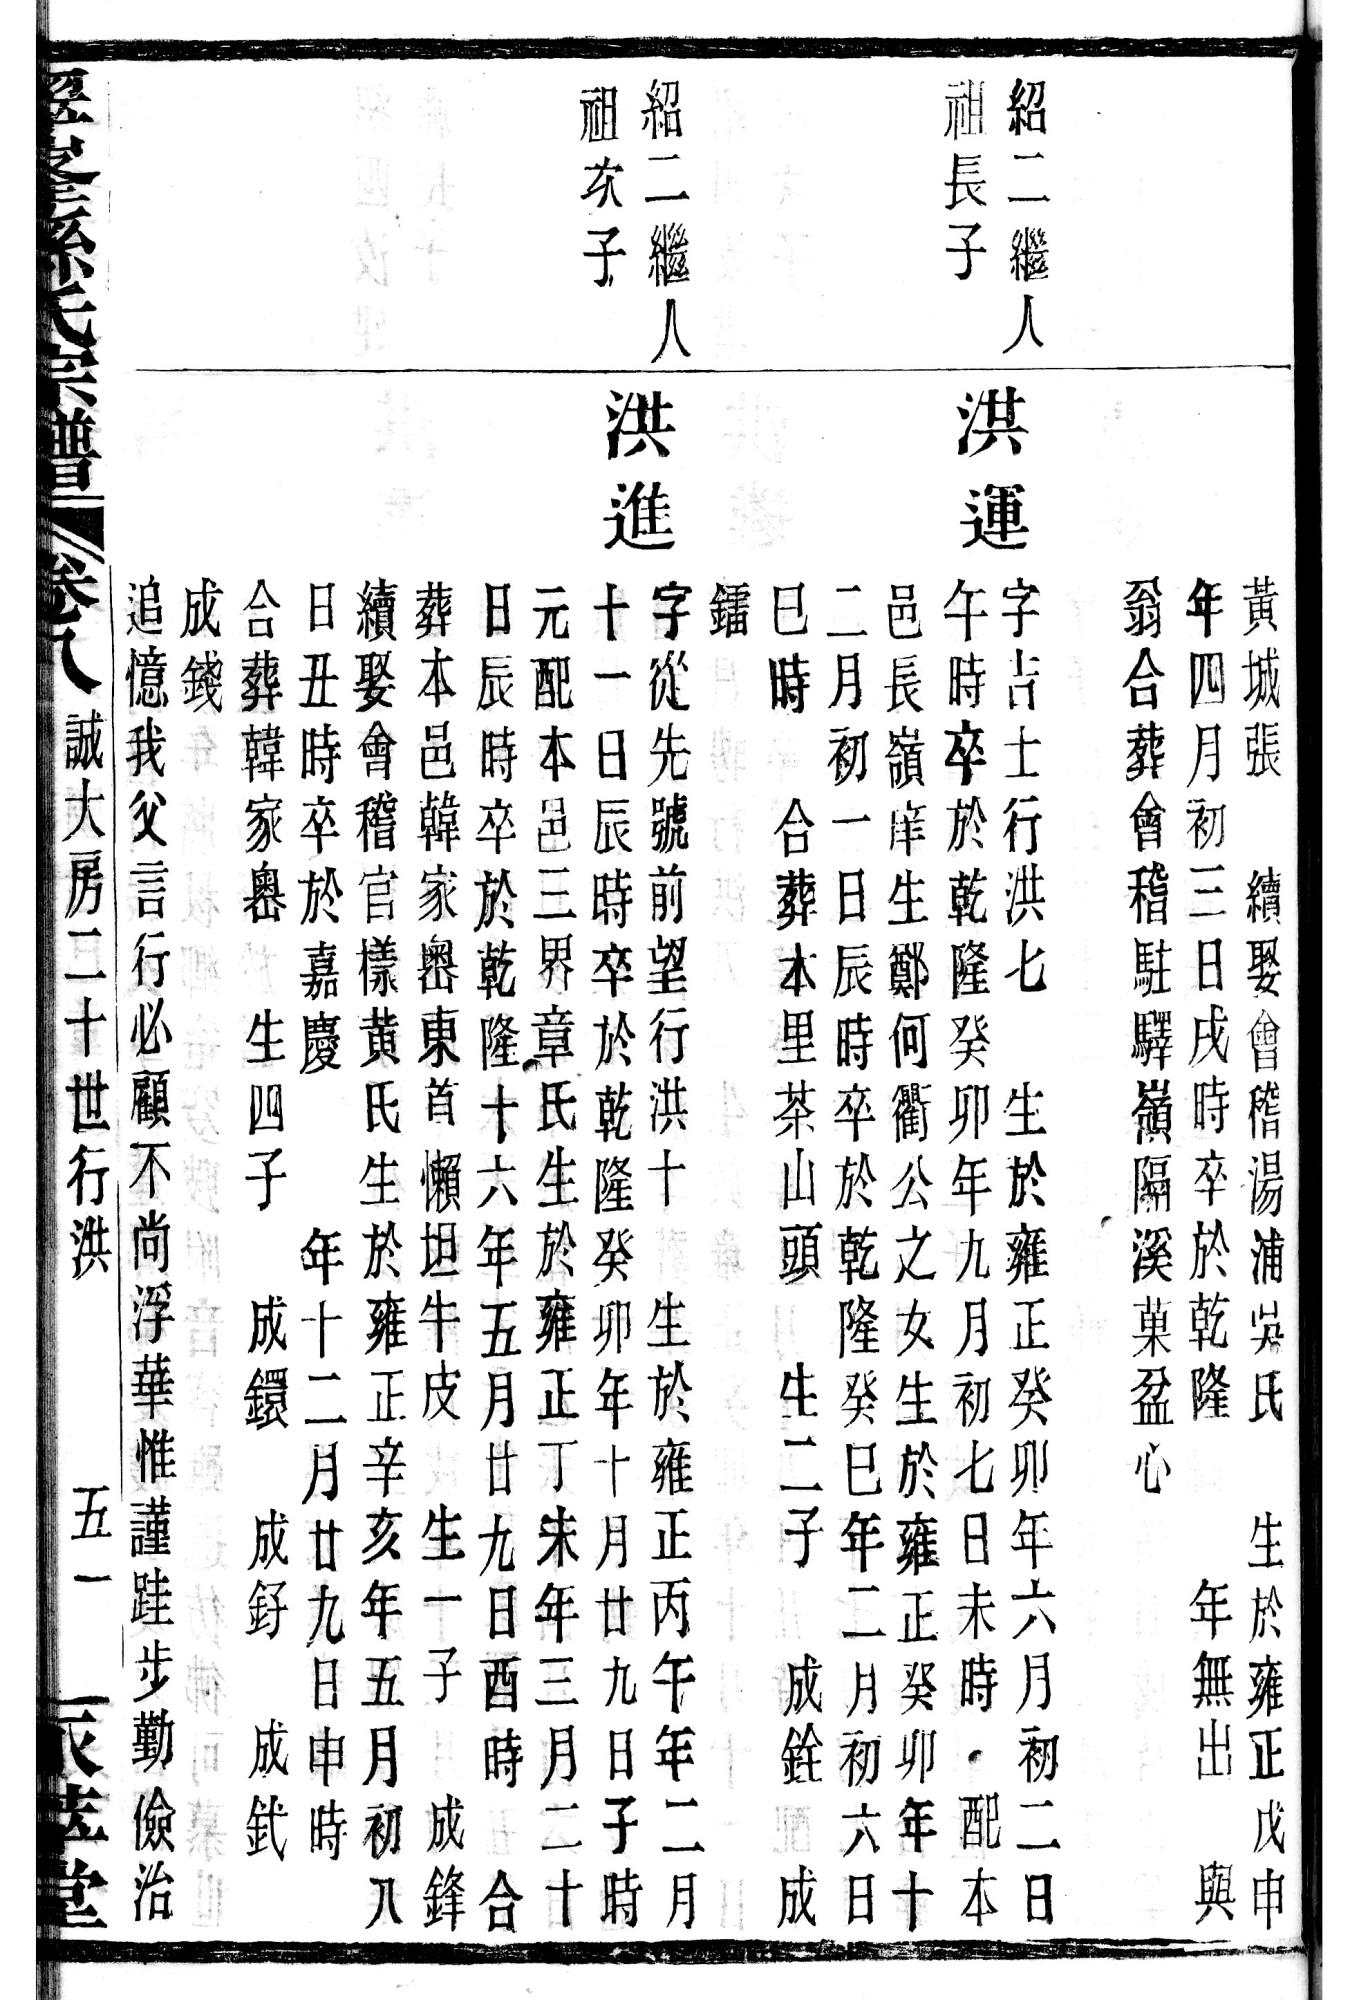 黃城張　續娶會稽湯浦吳氏　生於雍正戊申
年四月初三日戌時卒於乾隆　　年無出　與
翁合葬會稽駐驛嶺隔溪菓盆心
紹二繼人
祖長子
洪運
字吉士行洪七　生於雍正癸卯年六月初二日
午時卒於乾隆癸卯年九月初七日未時　配本
邑長嶺庠生鄭何衢公之女生於雍正癸卯年十
二月初一日辰時卒於乾隆癸巳年二月初六日
巳時　合葬本里茶山頭　生二子　成銓　成
鐳
紹二繼人
祖次子
洪進
字從先號前望行洪十　生於雍正丙午年二月
十一日辰時卒於乾隆癸卯年十月廿九日子時
元配本邑三界章氏生於雍正丁未年三月二十
日辰時卒於乾隆十六年五月廿九日酉時　合
葬本邑韓家嶴東首懶坦牛皮　生一子　成鋒
續娶會稽官樣黃氏生於雍正辛亥年五月初八
日丑時卒於嘉慶　　年十二月廿九日申時
合葬韓家嶴　生四子　成鐶　成釪　成釴
成錢
追憶我父言行必顧不尚浮華惟謹跬步勤儉治
孫氏宗譜　卷八　誠大房二十世行洪　五一　堂